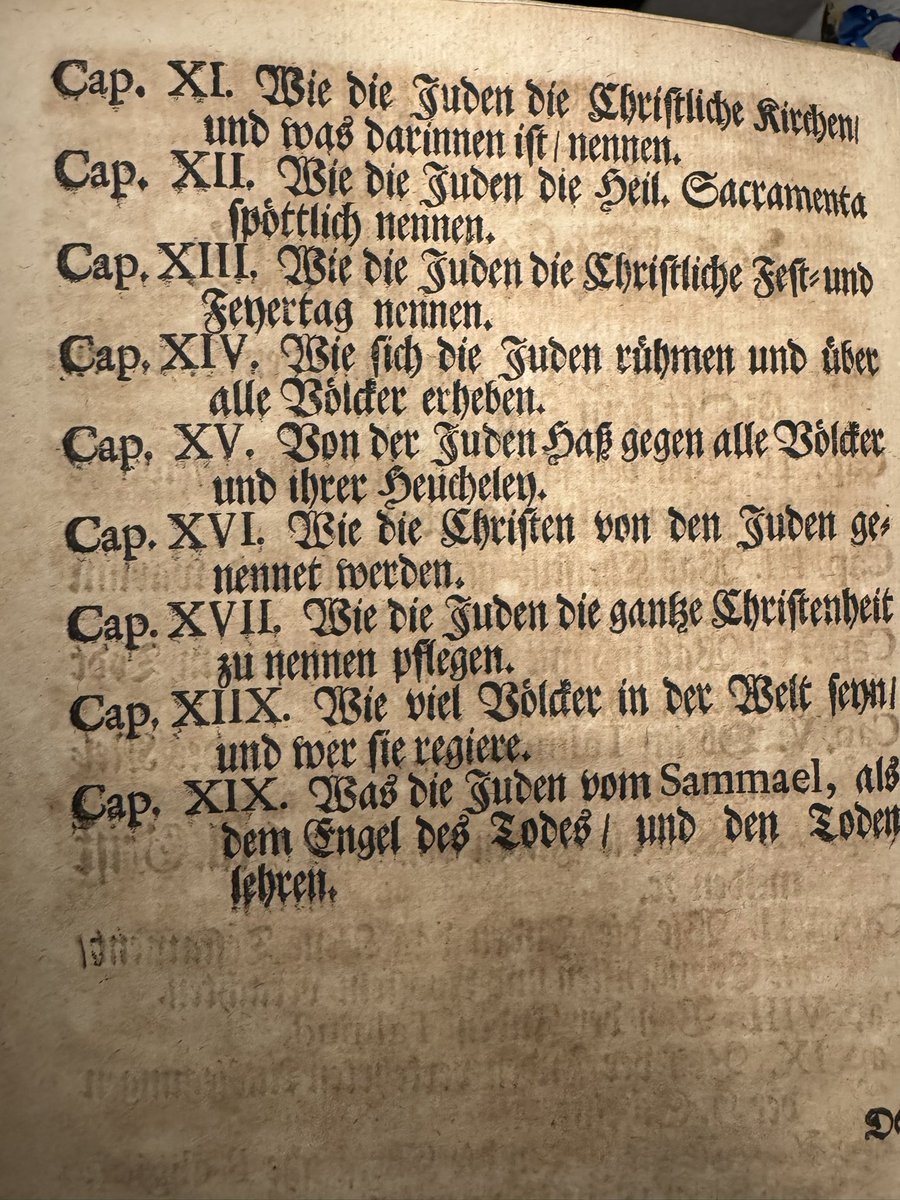 Cap. XI. Wie die Juden die Christliche Kirchen/
und was darinnen ist/ nennen.
Cap. XII. Wie die Juden die Heil. Sacramenta
spöttlich nennen.
Cap. XIII. Wie die Juden die Christliche Fest-und
Feyertag nennen.
Cap. XIV. Wie sich die Juden rühmen und über
alle Völcker erheben.
Cap. XV. Von der Juden Haß gegen alle Völcker
und ihrer Heucheley.
Cap. XVI. Wie die Christen von den Juden ge-
nennet werden.
Cap. XVII. Wie die Juden die gantze Christenheit
zu nennen pflegen.
Cap. XIIX. Wie viel Völcker in der Welt seyn/
und wer sie regiere.
Cap. XIX. Was die Juden vom Sammael, als
dem Engel des Todes/ und den Toden
lehren.